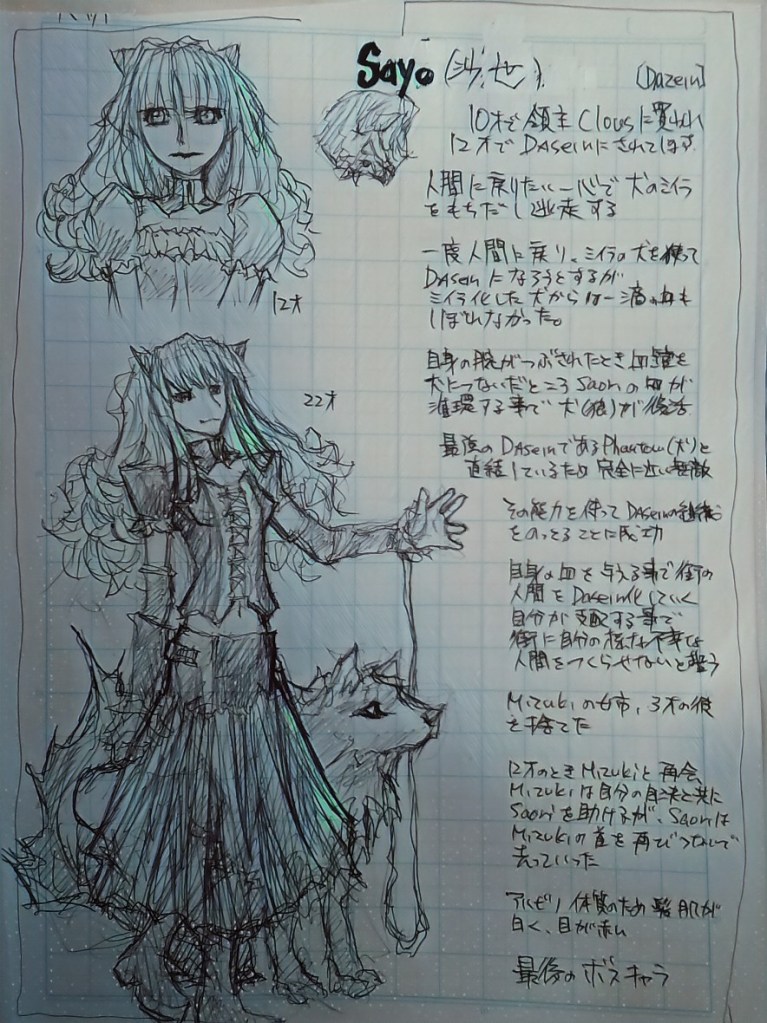 Sayo (沙世)
[Dazein]
10才で領主Clousに買われ
12才でDAseinにされてしまう
人間に戻りたい一心で犬のミイラ
をもちだし逃走する
一度人間に戻り、ミイラの犬を使って
DAseinになろうとするが
ミイラ化した犬からは一滴の血も
しぼれなかった。
自身の腕がつぶされたとき血管を
犬につないだところSaoriの血が
循環する事で犬(狼)が復活
最後のDAseinであるPhantom(犬)と
直結しているため完全に近い無敵
その能力を使ってDAseinの組織
をのっとることに成功
自身の血を与える事で街の
人間をDasein化していく
自分が支配する事で
街に自分の様な不幸な
人間をつくらせないと誓う
Mizukiの姉、3才の彼
を捨てた
12才のときMizukiと再会
Mizukiは自分の自決と共に
Saoriを助けるが、Saoriは
Mizukiの首を再びつないで
去っていった
アルビノ体質のため髪肌が
白く、目が赤い
最後のボスキャラ
12才
22才